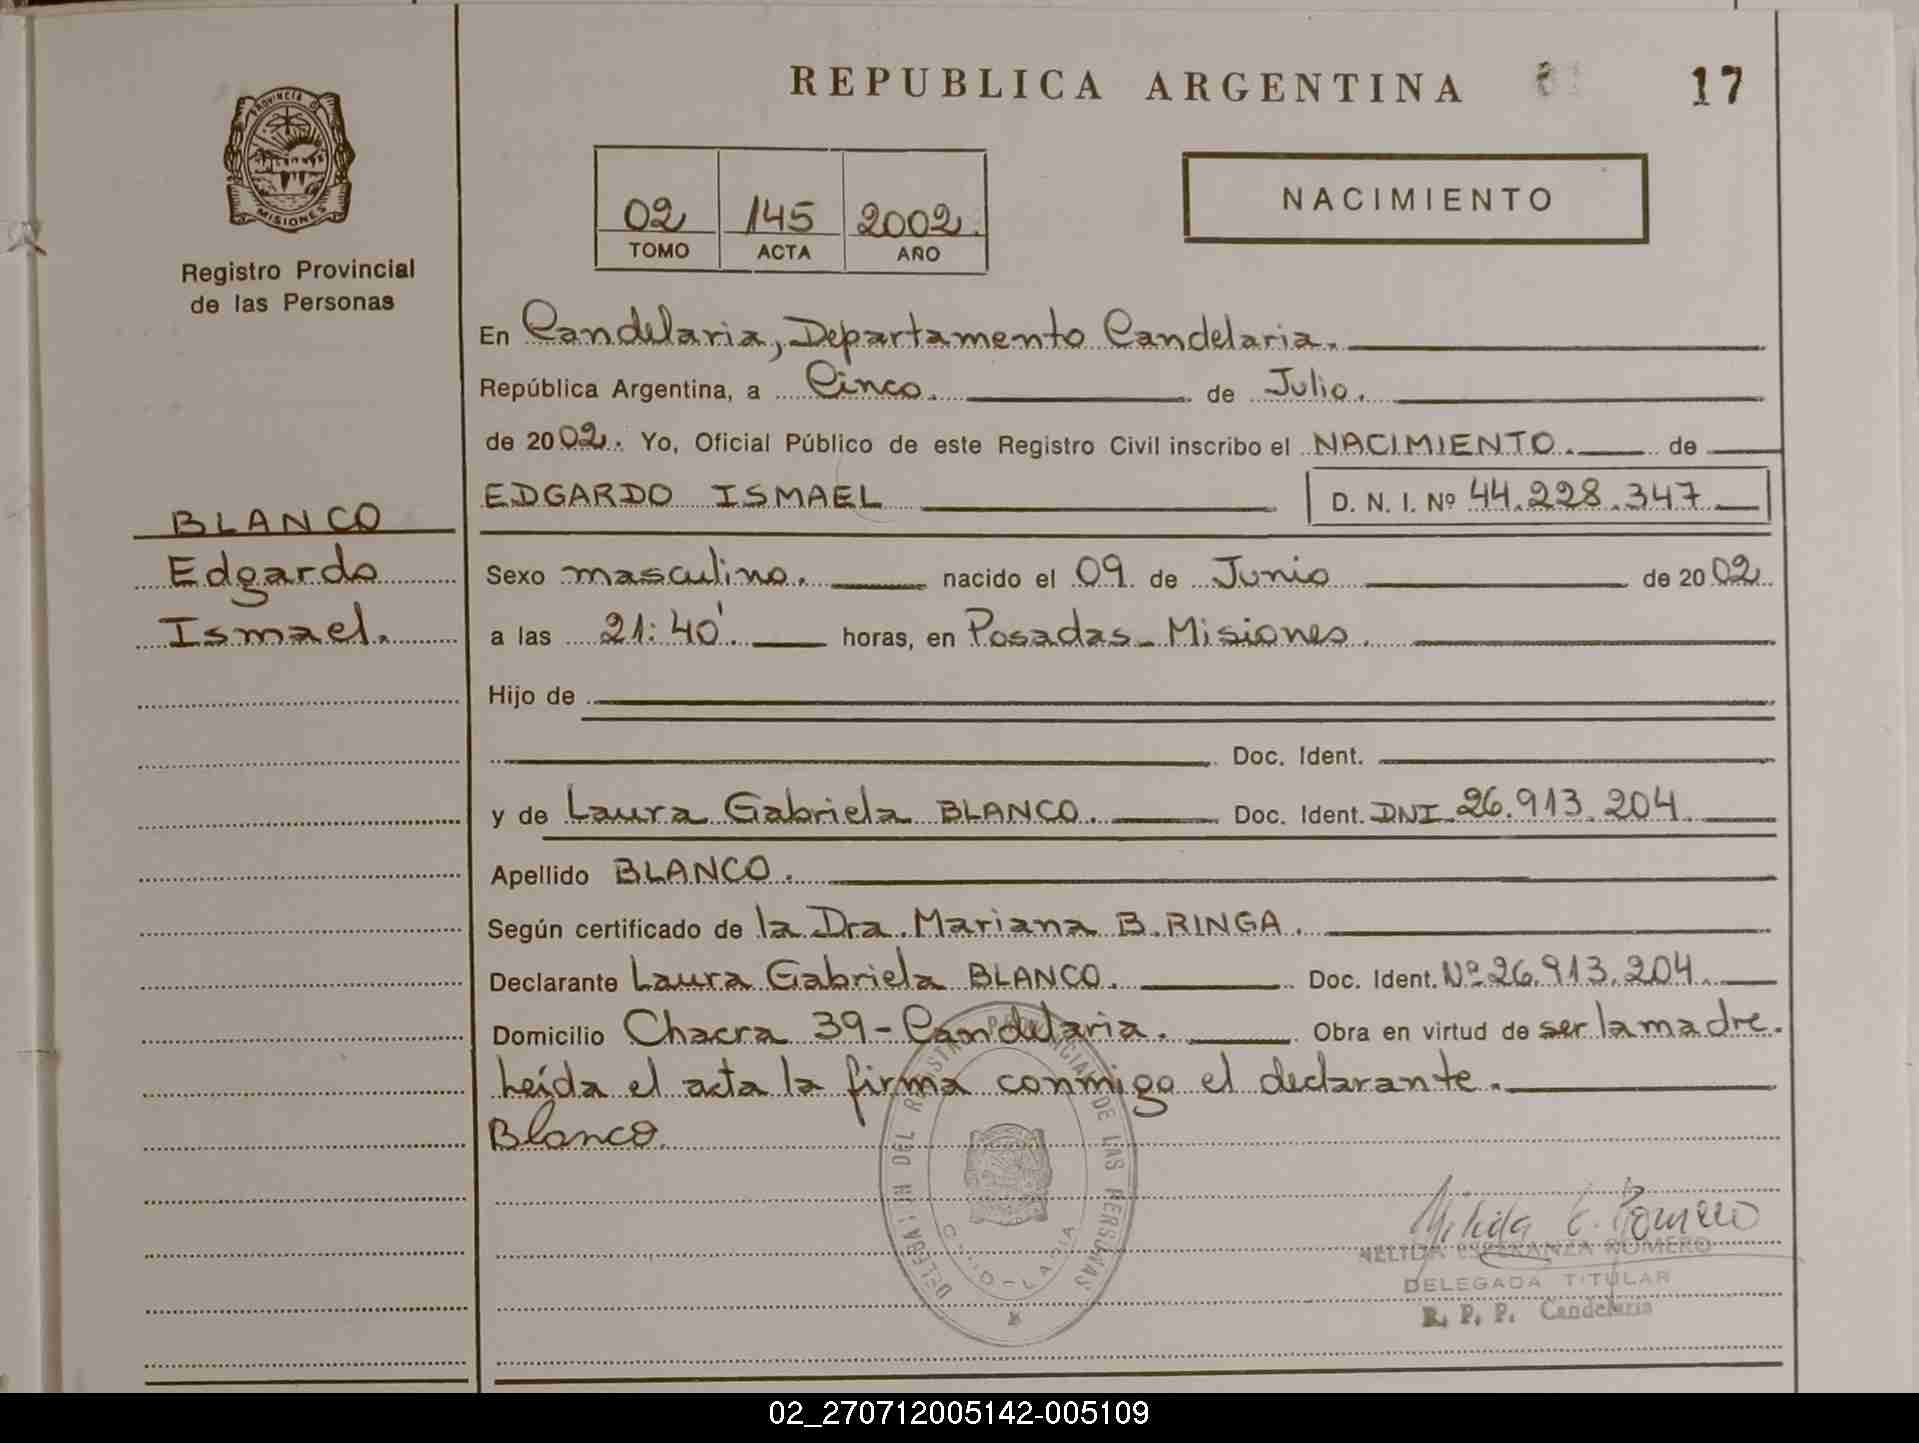 REPUBLICA ARGENTINA
17
PROVINCIA D
MISIONES
Registro Provincial
de las Personas
02 145 2002.
TOMO ACTA AÑO
NACIMIENTO
En Candelaria, Departamento Candelaria.
República Argentina, a Cinco. de Julio.
de 2002. Yo, Oficial Público de este Registro Civil inscribo el NACIMIENTO. de
EDGARDO ISMAEL D. N. I. Nº 44.228.347
BLANCO
Edgardo
Ismael.
Sexo masculino. nacido el 09 de Junio de 2002
a las 21:40'. horas, en Posadas - Misiones.
Hijo de
Doc. Ident.
y de Laura Gabriela BLANCO. Doc. Ident. DNI 26.913.204
Apellido BLANCO.
Según certificado de la Dra. Mariana B. RINGA.
Declarante Laura Gabriela BLANCO. Doc. Ident. Nº 26.913.204.
Domicilio Chacra 39 - Candelaria. Obra en virtud de ser la madre.
Leída el acta la firma conmigo el declarante.
Blanco
DEL REGISTRO PROVINCIAL DE LAS PERSONAS
NELIDA ESPERANZA ROMERO
DELEGADA TITULAR
R. P. P. Candelaria
02_270712005142-005109